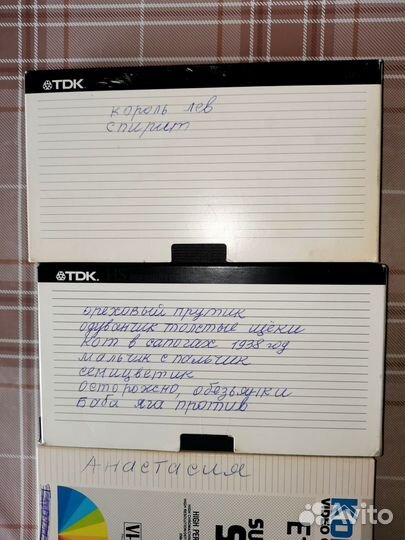 TDK
король лев
спирит
TDK
ореховый прутик
одуванчик толстые щёки
кот в сапогах 1938 год
мальчик с пальчик
семицветик
осторожно, обезьянки
Баба яга против
Анастасия
VIDEO
HIGH
SU
E
VH
Avito